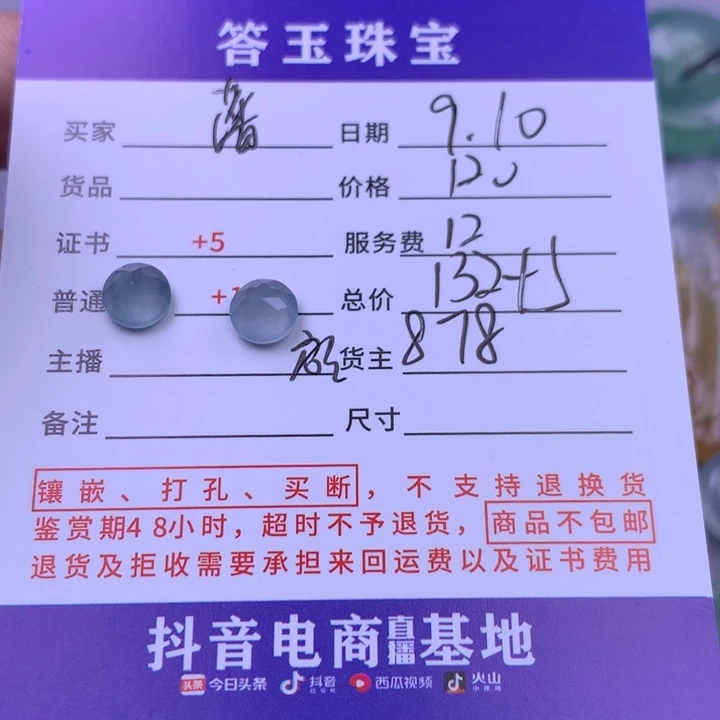 答玉珠宝
买家 日期 9.10
货品 价格 120
证书 +5 服务费 12
普通 总价 132+5
主播 货主 878
备注 尺寸
镶嵌、打孔、买断，不支持退换货
鉴赏期48小时，超时不予退货，商品不包邮
退货及拒收需要承担来回运费以及证书费用
抖音电商直播基地
头条 今日头条 抖音 西瓜视频 火山